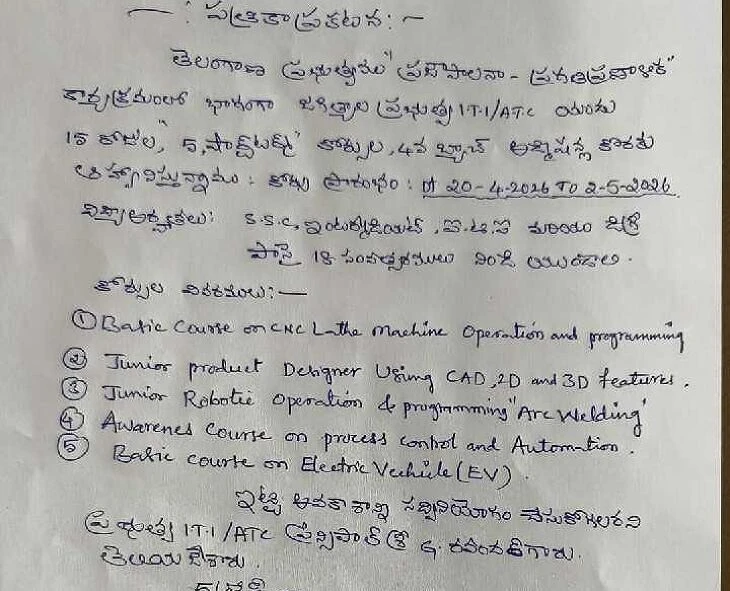 —: పత్రికాప్రకటన :—
తెలంగాణ ప్రభుత్వము "ప్రజాపాలనా - ప్రగతిప్రణాళిక"
కార్యక్రమంలో భాగంగా జగిత్యాల ప్రభుత్వ I.T.I/ATC యందు
15 రోజుల, "5, షార్ట్‌టర్మ్" కోర్సుల, 4వ బ్యాచ్ అడ్మిషన్ల కొరకు
ఆహ్వానిస్తున్నాము : కోర్సు ప్రారంభం : Dt 20-4-2026 TO 2-5-2026
విద్యాఅర్హతలు: S.S.C, ఇంటర్మీడియట్, ఐ.టి.ఐ మరియు డిగ్రీ
పాసై 18 సంవత్సరములు నిండి యుండాలి.
కోర్సుల వివరములు:—
① Basic Course on CNC Lathe Machine Operation and programming
② Junior product Designer Using CAD, 2D and 3D features.
③ Junior Robotic Operation & programming "Arc Welding"
④ Awarenes Course on process control and Automation.
⑤ Basic course on Electric Vechicle (EV).
ఇట్టి అవకాశాన్ని సద్వినియోగం చేసుకోగలరని
ప్రభుత్వ I.T.I/ATC ప్రిన్సిపాల్ శ్రీ G. రవీందర్‌గారు.
తెలియజేశారు.